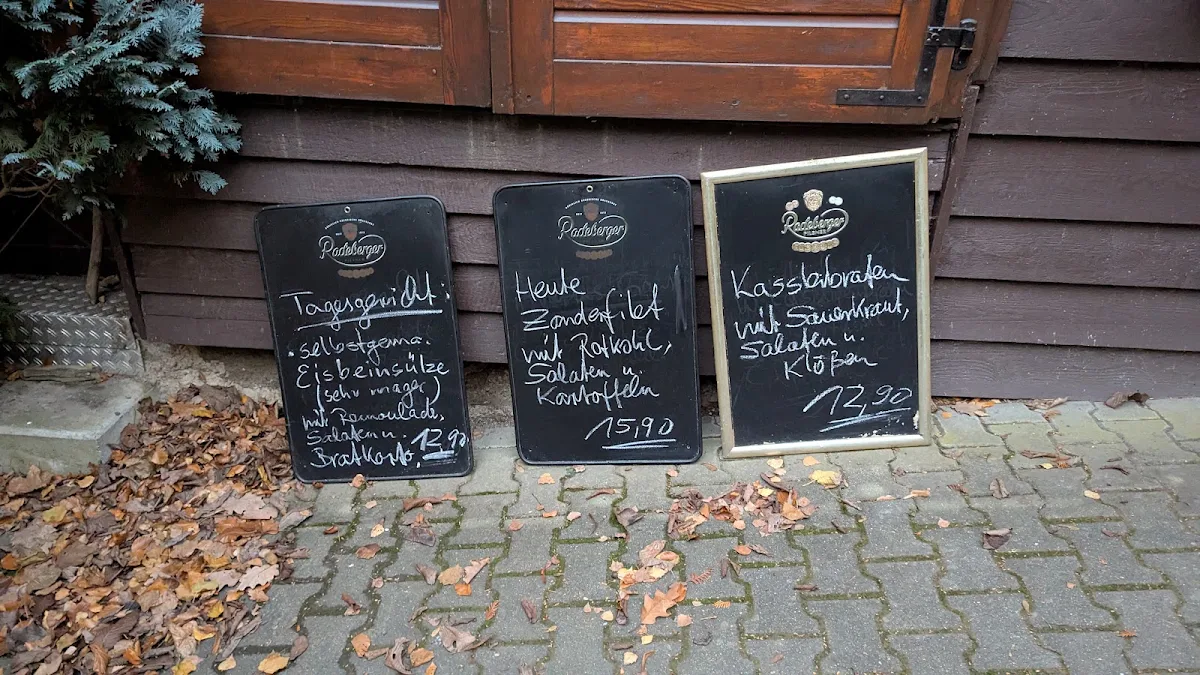 Radeberger
Tagesgericht:
selbstgema.
Eisbeinsülze
(sehr mager)
mit Remoulade,
Salaten u. 12,90
Bratkarto.
Radeberger
Heute
Zanderfilet
mit Rotkohl,
Salaten u.
Kartoffeln
15,90
Radeberger
PILSNER
Kasslerbraten
mit Sauerkraut,
Salaten u.
Klößen
12,90